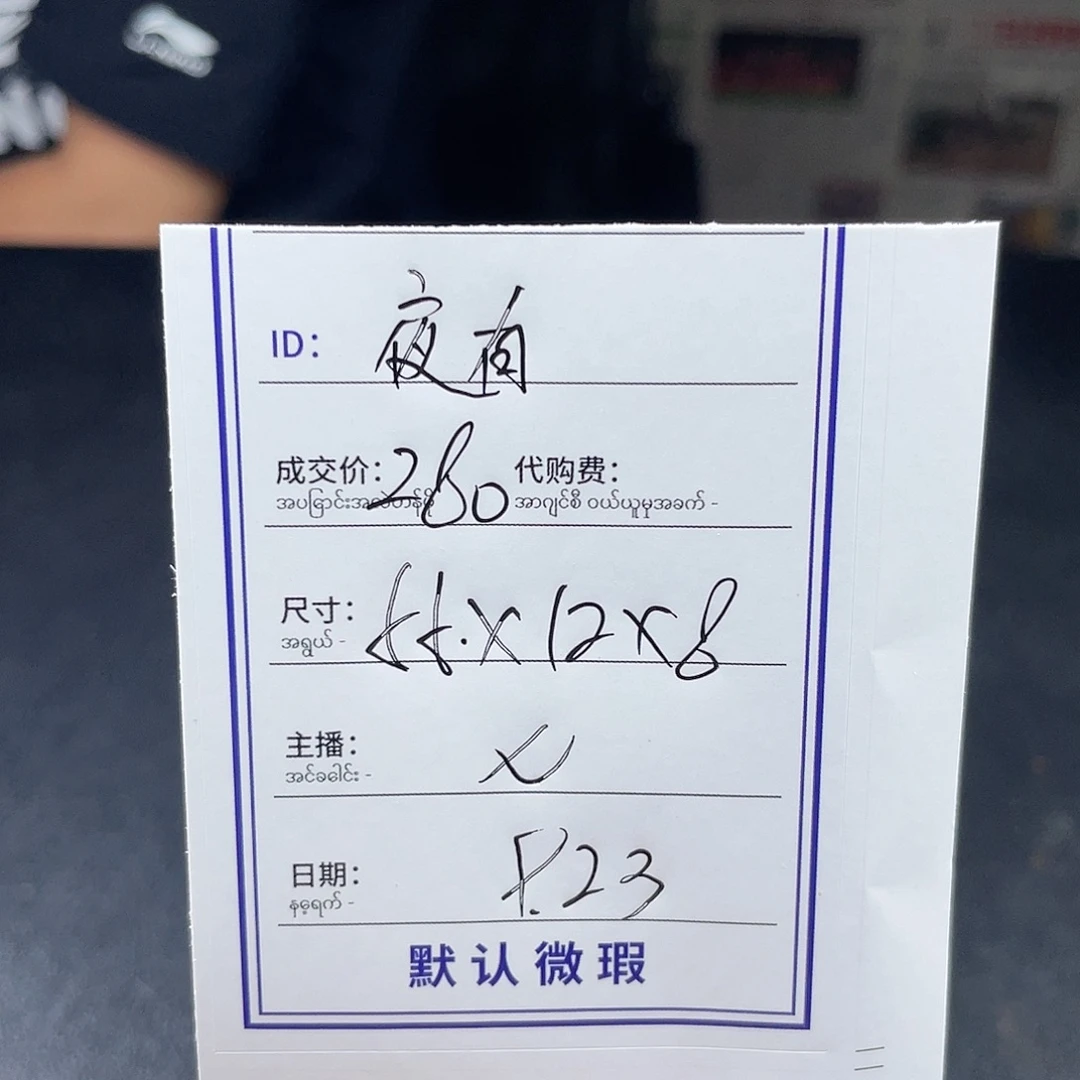 ID：夜
成交价：280 代购费：
အပြောင်းအလဲတန်ဖို အာဂျင်စီ ဝယ်ယူမှုအခက် -
尺寸： x 12 x 8
အရွယ် -
主播：
အင်ခေါင်း -
日期： 23
နေ့ရက် -
默认微瑕